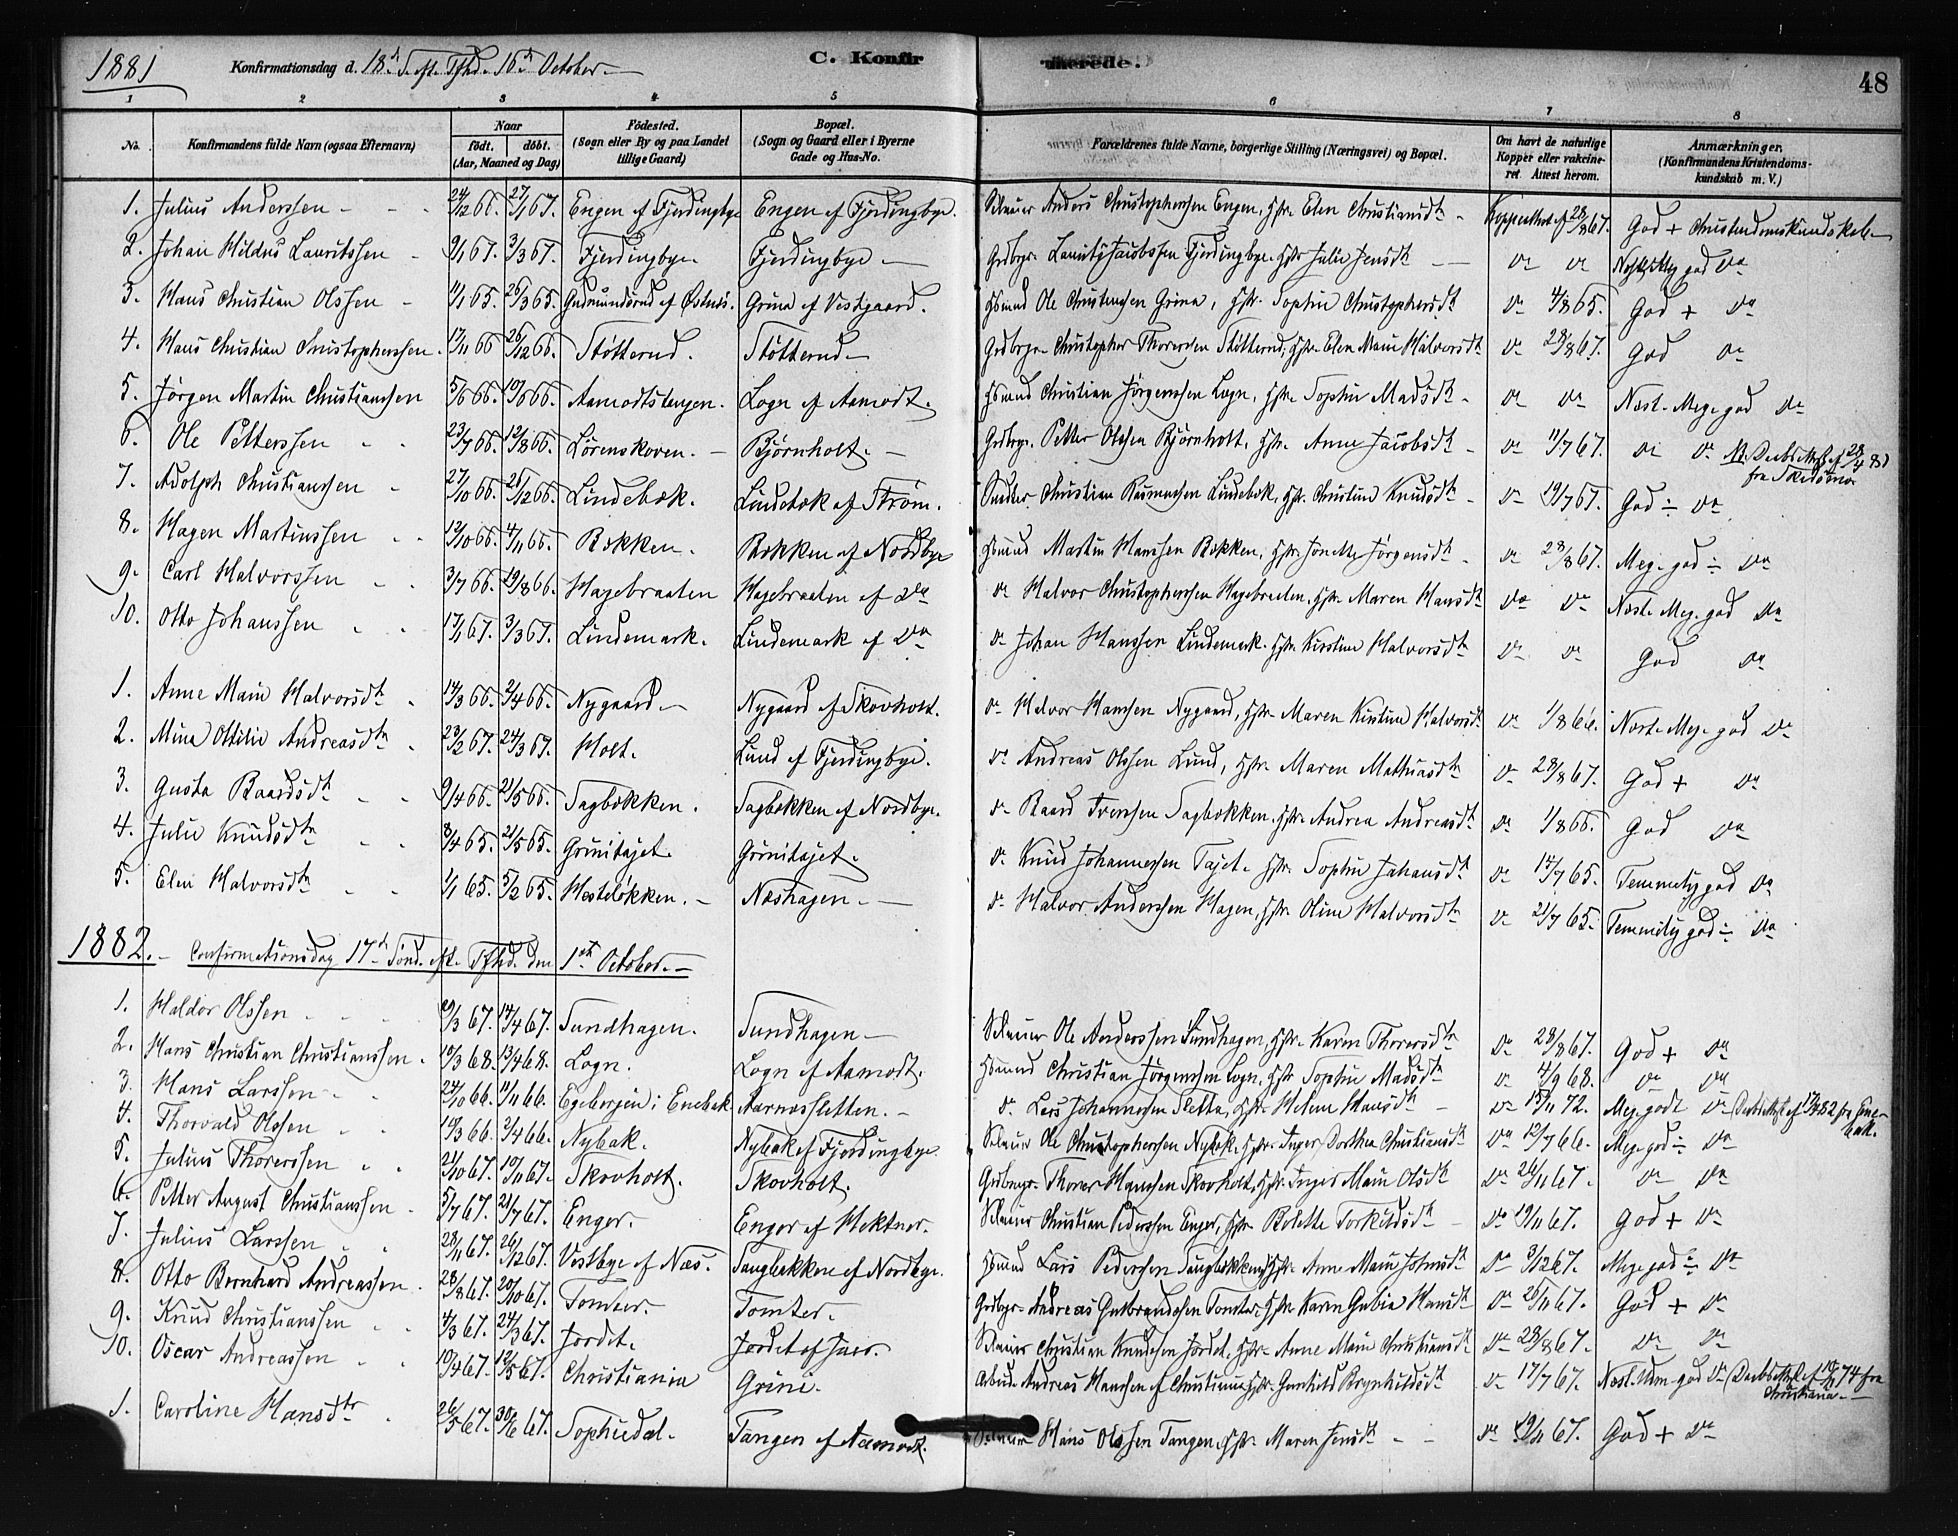 1881 Konfirmationsdag d. 18de S. eft. Tfhd. 16de October. C. Konfirmerede. 48
1 2 3 4 5 6 7 8
No. Konfirmandens fulde Navn (ogsaa Efternavn) Naar født. døbt. (Aar, Maaned og Dag) Fødested. (Sogn eller By og paa Landet tillige Gaard) Bopæl. (Sogn og Gaard eller i Byerne Gade og Hus-No. Forældrenes fulde Navne, borgerlige Stilling (Næringsvei) og Bopæl. Om havt de naturlige Kopper eller vakcineret. Attest herom. Anmærkninger. (Konfirmandens Kristendomskundskab m. V.)
1. Julius Anderssen 24/12 66. 27/1 67. Engen af Fjerdingbye Engen af Fjerdingbye. Selveier Anders Christophersen Engen, Hstr. Elen Christiansdtr Koppeattest af 28/8 67. God + Christendomskundskab
2. Johan Hildus Lauritssen 9/1 67. 3/3 67. Fjerdingbye. Fjerdingbye Grdbrgr. Lauritz Jacobssen Fjerdingbye. Hstr Julie Jensdtr do do god Do
3. Hans Christian Olssen 11/1 65. 26/3 65. Gudmundsrud af Østnes. Grina af Vestgaard. Hsmnd Ole Christensen Grina, Hstr. Sophie Christophersdtr Do 4/8 65. God + Do
4. Hans Christian Christopherssen. 17/11 66 26/12 66. Støtterud. Støtterud Grdbrgr. Christopher Thoresen Støtterud, Hstr. Elen Marie Halvorsdtr Do 28/8 67. God Do
5. Jørgen Martin Christianssen 5/6 66. 10/6 66. Aamodtstangen. Logn af Aamodt. Hsmnd Christian Jørgenssen Logn, Hstr. Sophie Madsdtr Do Do Næst. Meg. god Do
6. Ole Petterssen 23/7 66. 12/8 66. Lørenskoven. Bjørnholt. Grdbrgr. Petter Olssen Bjørnholt, Hstr. Anne Jacobsdtr Do 11/7 67. Do Do NB. Daabsattest af 28/4 81 fra Skedsmo
7. Adolph Christianssen 27/10 66. 25/12 66. Lindebæk. Lindebæk af Strøm. Christian Rasmussen Lindebæk, Hstr. Christine Knudsdtr Do 19/7 67. God ÷ Do
8. Hagen Martinssen 12/10 66. 4/11 66. Bækken. Bækken af Nordbye Hsmnd Martin Hanssen Bækken, Hstr. Jørgensdtr Do 28/8 67. Meg. god ÷ Do
9. Carl Halvorssen 3/7 66. 19/8 66. Hagebraaten Hagebraaten af Do Do Halvor Christophersen Hagebraaten, Hstr. Maren Hansdtr Do Do Næst. Meg. god Do
10. Otto Johanssen 17/1 67. 3/3 67. Lindemark. Lindemark af Do Do Johan Hanssen Lindemark. Hstr. Kirstine Halvorsdtr Do Do God Do
1. Anne Marie Halvorsdtr 14/3 66. 2/4 66. Nygaard Nygaard af Skovholt. Do Halvor Hansen Nygaard, Hstr. Maren Kirstine Halvorsdtr Do 1/8 66. Næst. Meg. god Do
2. Mina Ottilie Andreasdtr 23/2 67. 24/3 67. Holt. Lund af Fjerdingbye. Do Andreas Olssen Lund, Hstr. Maren Mathiasdtr Do 28/8 67. God + Do
3. Gusta Baardsdtr 9/4 66. 21/5 66. Sagbækken. Sagbækken af Nordbye. Do Baard Iversen Sagbækken, Hstr. Andrea Andreasdtr Do 1/8 66. God Do
4. Julie Knudsdtr 8/4 65. 21/5 65. Grinitajet. Grinitajet. Do Knud Johannesen Tajet. Hstr. Sophie Johansdtr Do 14/7 65. Temmelig god Do
5. Elen Halvorsdtr 1/1 65. 5/2 65. Hesteløkken. Næshagen. Do Halvor Andersen Hagen, Hstr. Oline Halvorsdtr Do 21/7 65. Temmelig god ÷ Do
1882. Confirmationsdag 17de Sønd. eft. Tfhd. den 1ste October.
1. Haldor Olssen 10/3 67. 14/4 67. Sundhagen. Sundhagen Selveier Ole Anderssen Sundhagen, Hstr. Karen Thoresdtr Do 28/8 67. God + Do
2. Hans Christian Christianssen. 10/3 68. 13/4 68. Logn. Logn af Aamodt. Hsmnd Christian Jørgenssen Logn, Hstr Sophie Madsdtr Do 4/9 68. Do Do
3. Hans Larssen 24/10 66. 11/11 66. Egebergen i Enebak Aarnæssletten. Do Lars Johannesen Sletta, Hstr. Helene Hansdtr Do 15/11 72. Meg. godt Do Daabsattest af 82 fra Enebak.
4. Thorvald Olssen 10/3 66. 2/4 66. Nybak. Nybak af Fjerdingbye Selveier Ole Christophersen Nybak, Hstr. Inger Dorthea Christiansdtr Do 12/7 66. Meg. god ÷ Do
5. Julius Thorerssen 21/10 67. 10/11 67. Skovholt. Skovholt. Grdbrgr. Thorer Hansen Skovholt, Hstr. Inger Marie Olsdtr Do 26/11 67. Do Do
6. Petter August Christianssen. 5/7 67. 21/7 67. Enger. Enger af Hektner. Selveier Christian Pederssen Enger, Hstr. Bolette Torkildsdtr Do 19/11 67. God + Do
7. Julius Larssen 28/11 67. 26/12 67. Vestbye af Næs. Saugbækken af Nordbye. Hsmnd Lars Pedersen Saugbækken, Hstr. Anne Marie Do 3/12 67. Meg. god ÷ Do
8. Otto Bernhard Andreassen. 28/8 67. 20/10 67. Tomter. Tomter. Grdbrgr. Andreas Gulbrandsen Tomter, Hstr. Karen Gubia Hansdtr Do 25/11 67. God + Do
9. Knud Christianssen 4/3 67. 24/3 67. Jordet. Jordet af Jaer. Selveier Christian Knudsen Jordet, Hstr. Anne Marie Christiansdtr Do 28/8 67. Do Do
10. Oscar Andreassen 10/4 67. 12/5 67. Christiania Grini. Arbeid. Andreas Hansen af Christiania, Hstr. Gunhild Brynhildsdtr Do 17/7 67. Næst. Udm. god Do (Daabsattest af 74 fra Christiania.
1. Caroline Hansdtr 26/5 67. 30/6 67. Sophiedal. Tangen af Aamodt. Selveier Hans Olssen Tangen, Hstr. Maren Jensdtr Do 19/11 67. God + Do